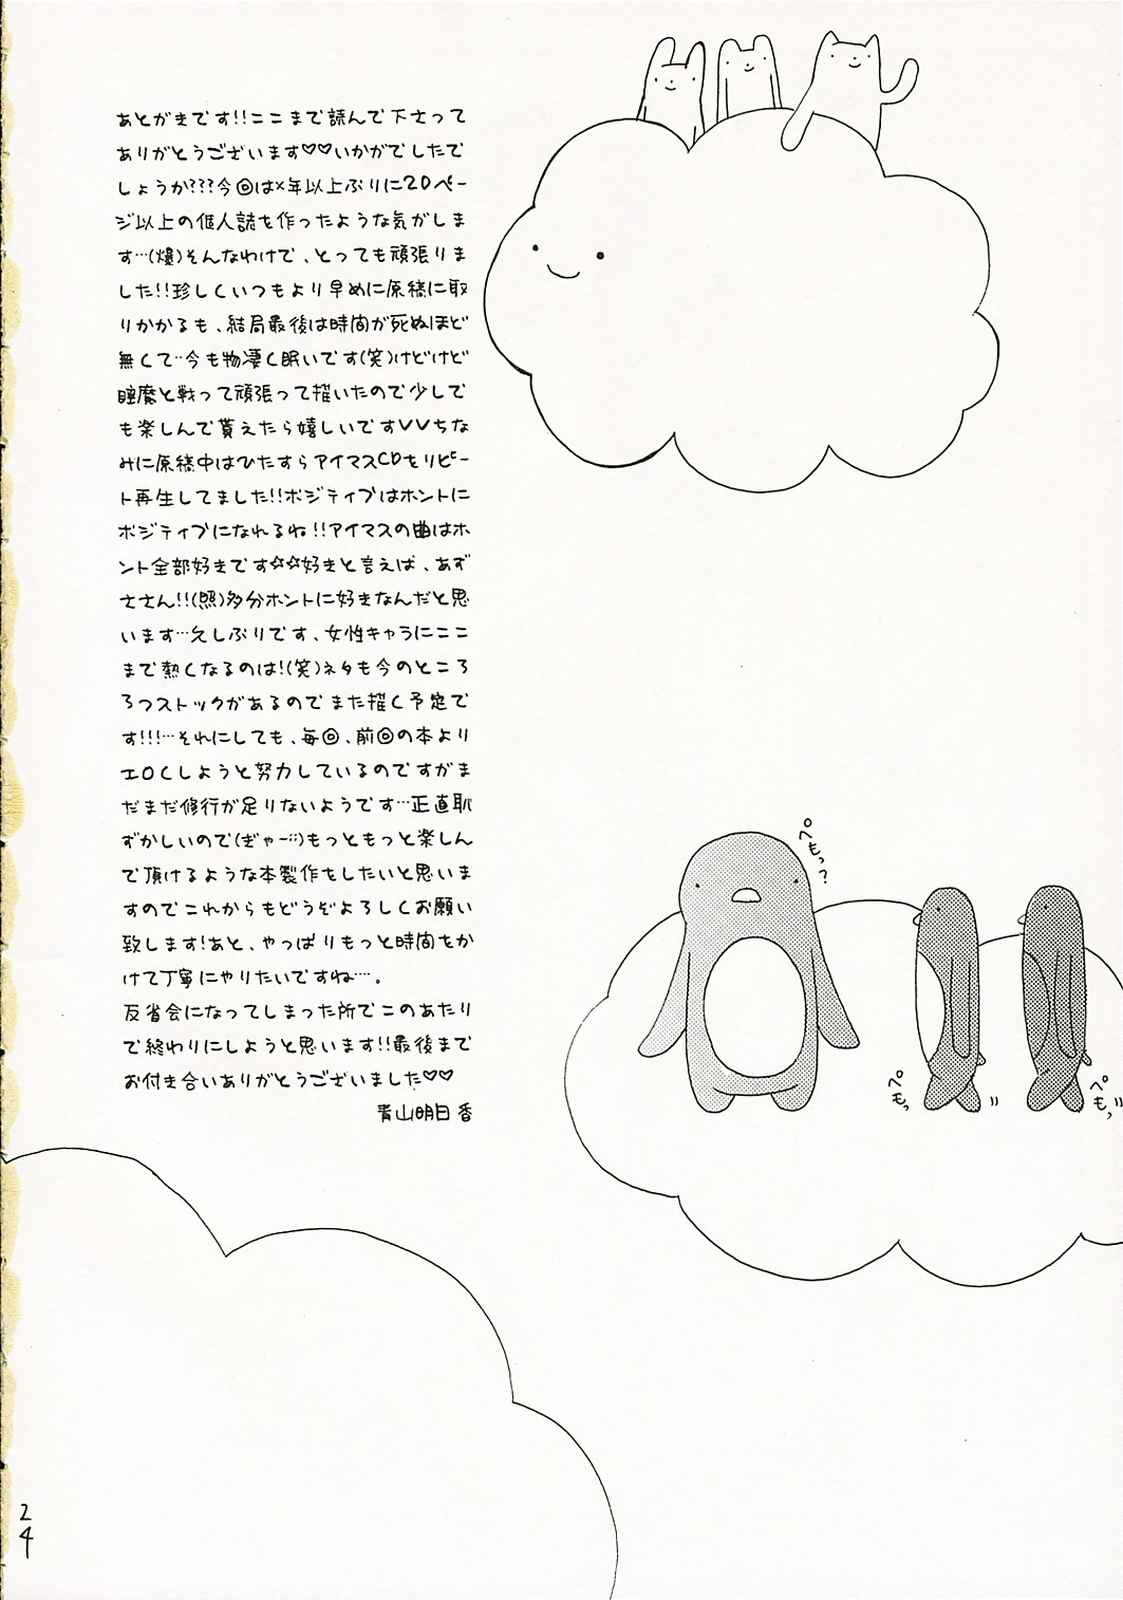 あとがきです!!ここまで読んで下さって
ありがとうございます♡♡いかがでしたで
しょうか???今回は×年以上ぶりに20ペー
ジ以上の個人誌を作ったような気がしま
す…(爆)そんなわけで、とっても頑張りま
した!!珍しくいつもより早めに原稿に取
りかかるも、結局最後は時間が死ぬほど
無くて…今も物凄く眠いです(笑)けどけど
睡魔と戦って頑張って描いたので少しで
も楽しんで貰えたら嬉しいですVVちな
みに原稿中はひたすらアイマスCDをリピー
ト再生してました!!ポジティブはホントに
ポジティブになれるね!!アイマスの曲はホ
ント全部好きです☆☆好きと言えば、あず
ささん!!(照)多分ホントに好きなんだと思
います…久しぶりです、女性キャラにここ
まで熱くなるのは!(笑)ネタも今のところ
3つストックがあるのでまた描く予定で
す!!!…それにしても、毎回、前回の本より
エロくしようと努力しているのですがま
だまだ修行が足りないようです…正直恥
ずかしいので(ぎゃー;;)もっともっと楽しん
で頂けるような本製作をしたいと思いま
すのでこれからもどうぞよろしくお願い
致します!あと、やっぱりもっと時間をか
けて丁寧にやりたいですね…。
反省会になってしまった所でこのあたり
で終わりにしようと思います!!最後まで
お付き合いありがとうございました♡♡
青山明日香
ぺもっ?
ぺもっ
ぺもっ
24